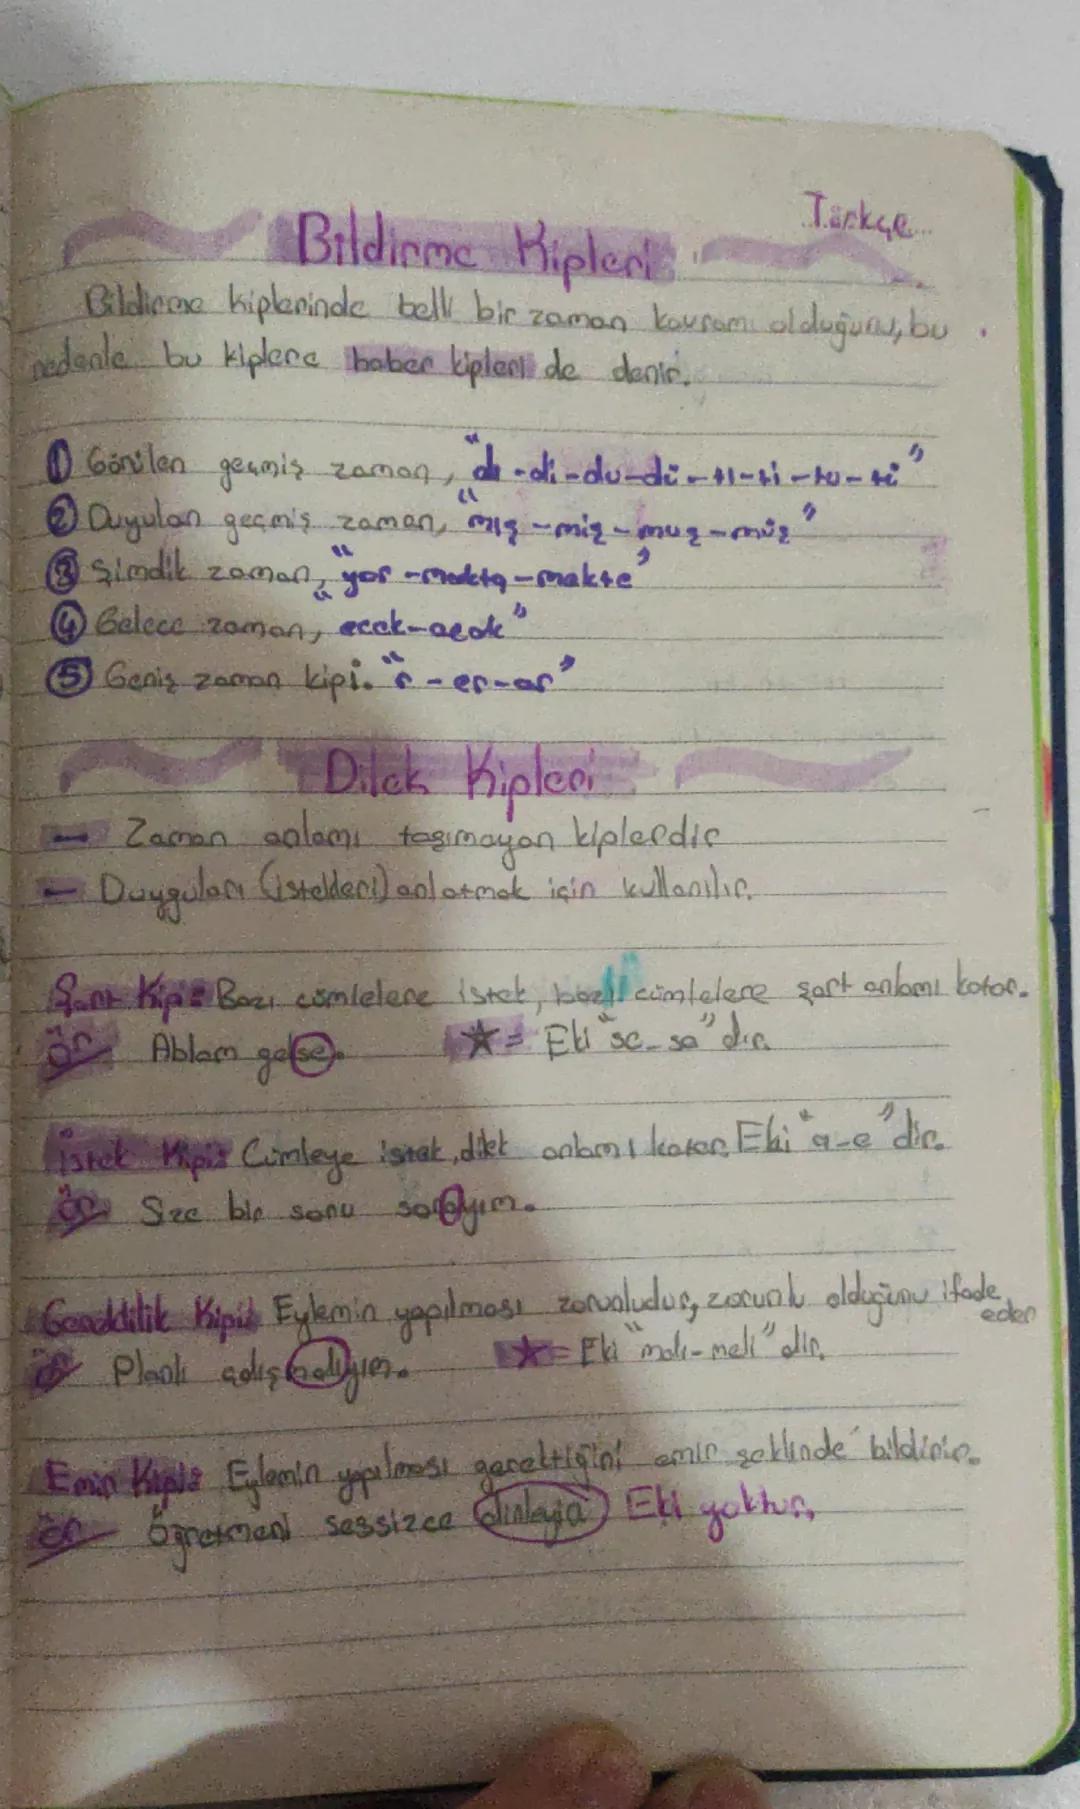 Türkçe
Bildirme Kipleri
Bildirme kiplerinde belli bir zaman kavramı olduğunu, bu
nedenle bu kiplere haber kipleri de denir.
① Görülen geçmiş zaman, "dı -di -du -dü -tı -ti -tu -tü"
② Duyulan geçmiş zaman, "mış -miş -muş -müş"
③ Şimdik zaman, "yor -makta -makte"
④ Gelece zaman, "ecek-acak"
⑤ Geniş zaman kipi. "r -er-ar"
Dilek Kipleri
- Zaman anlamı taşımayan kiplerdir
- Duyguları (istekleri) anlatmak için kullanılır.
Şart Kipi: Bazı cümlelere istek, bazı cümlelere şart anlamı katar.
ör Ablam gelse. ★= Eki "se-sa" dır.
İstek Kipi: Cümleye istek, dilek anlamı katar. Eki "a-e" dir.
ör Size bir soru sorayım.
Gereklilik Kipi: Eylemin yapılması zorunludur, zorunlu olduğunu ifade
eder
ör Planlı çalışmalıyım. ★= Eki "malı-meli" dir.
Emir Kipi: Eylemin yapılması gerektiğini emir şeklinde bildirir.
ör Öğretmeni sessizce dinleyin Eki yoktur.